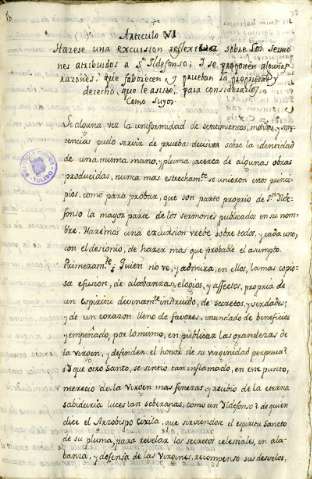 Articulo VI
Hazese una excursion reflexiva sobre los Sermo
nes atribuidos a Sn. Ildefonso, I se proponen algunas
razones, que faborecen, y prueban la propiedad y
derecho, que le asiste, para considerarlos
Como suyos
Si alguna vez la uniformidad de sentimientos, motivos, y
quencias pudo servir de prueba decisiva sobre la identidad
de una misma mano, y pluma, acerca de algunas obras
producidas, nunca mas estrecham.te se unieron estos princi
pios, como para probar, que son parto proprio de Sn. Ilde
fonso la mayor parte de los sermones publicados en su nom
bre. Haremos una excursion breve sobre todos, y cada uno,
con el designio, de hazer mas que probable el asumpto.
Primeram.te ¿Quien no ve, y admira, en ellos, la mas copio
sa efusion, de alabanzas, elogios, y affectos, propria de
un espiritu divinam.te instruido, de secretos, y verdades;
y de un corazon lleno de favores, inundado de beneficios
y empeñado, por lo mismo, en publicar las grandezas de
la Virgen, y defender el honor de su virginidad perpetua?
¿Y que otro Santo, se sintio tan inflamado, en este punto,
merecio de la Virgen mas finezas, y recibio de la eterna
sabiduria luces tan soberanas, como un Ildefonso? de quien
dice el Arzobispo Cixila, que sirviendose el espiritu Santo
de su pluma, para revelar los secretos celestiales, en ala
banza, y defensa de las Virgenes, recompenso sus desvelos,